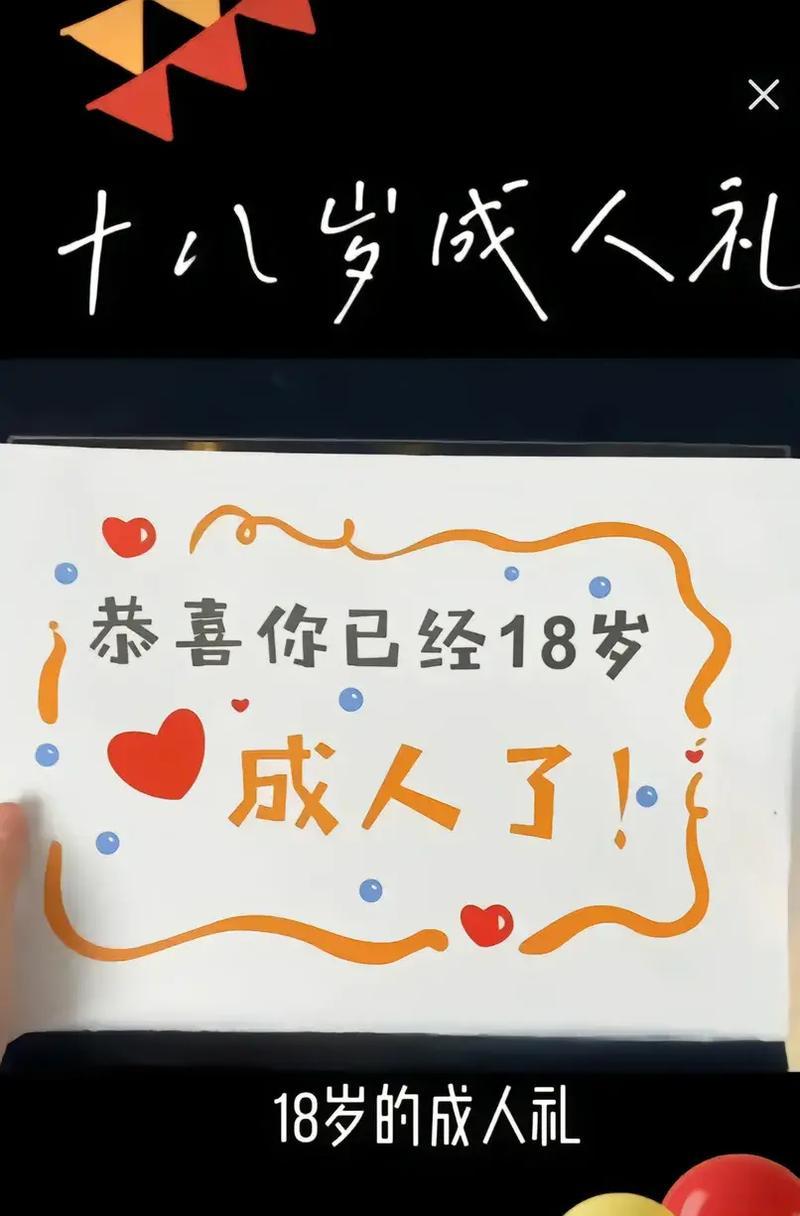 十八岁成人礼
恭喜你已经18岁
成人了!
18岁的成人礼